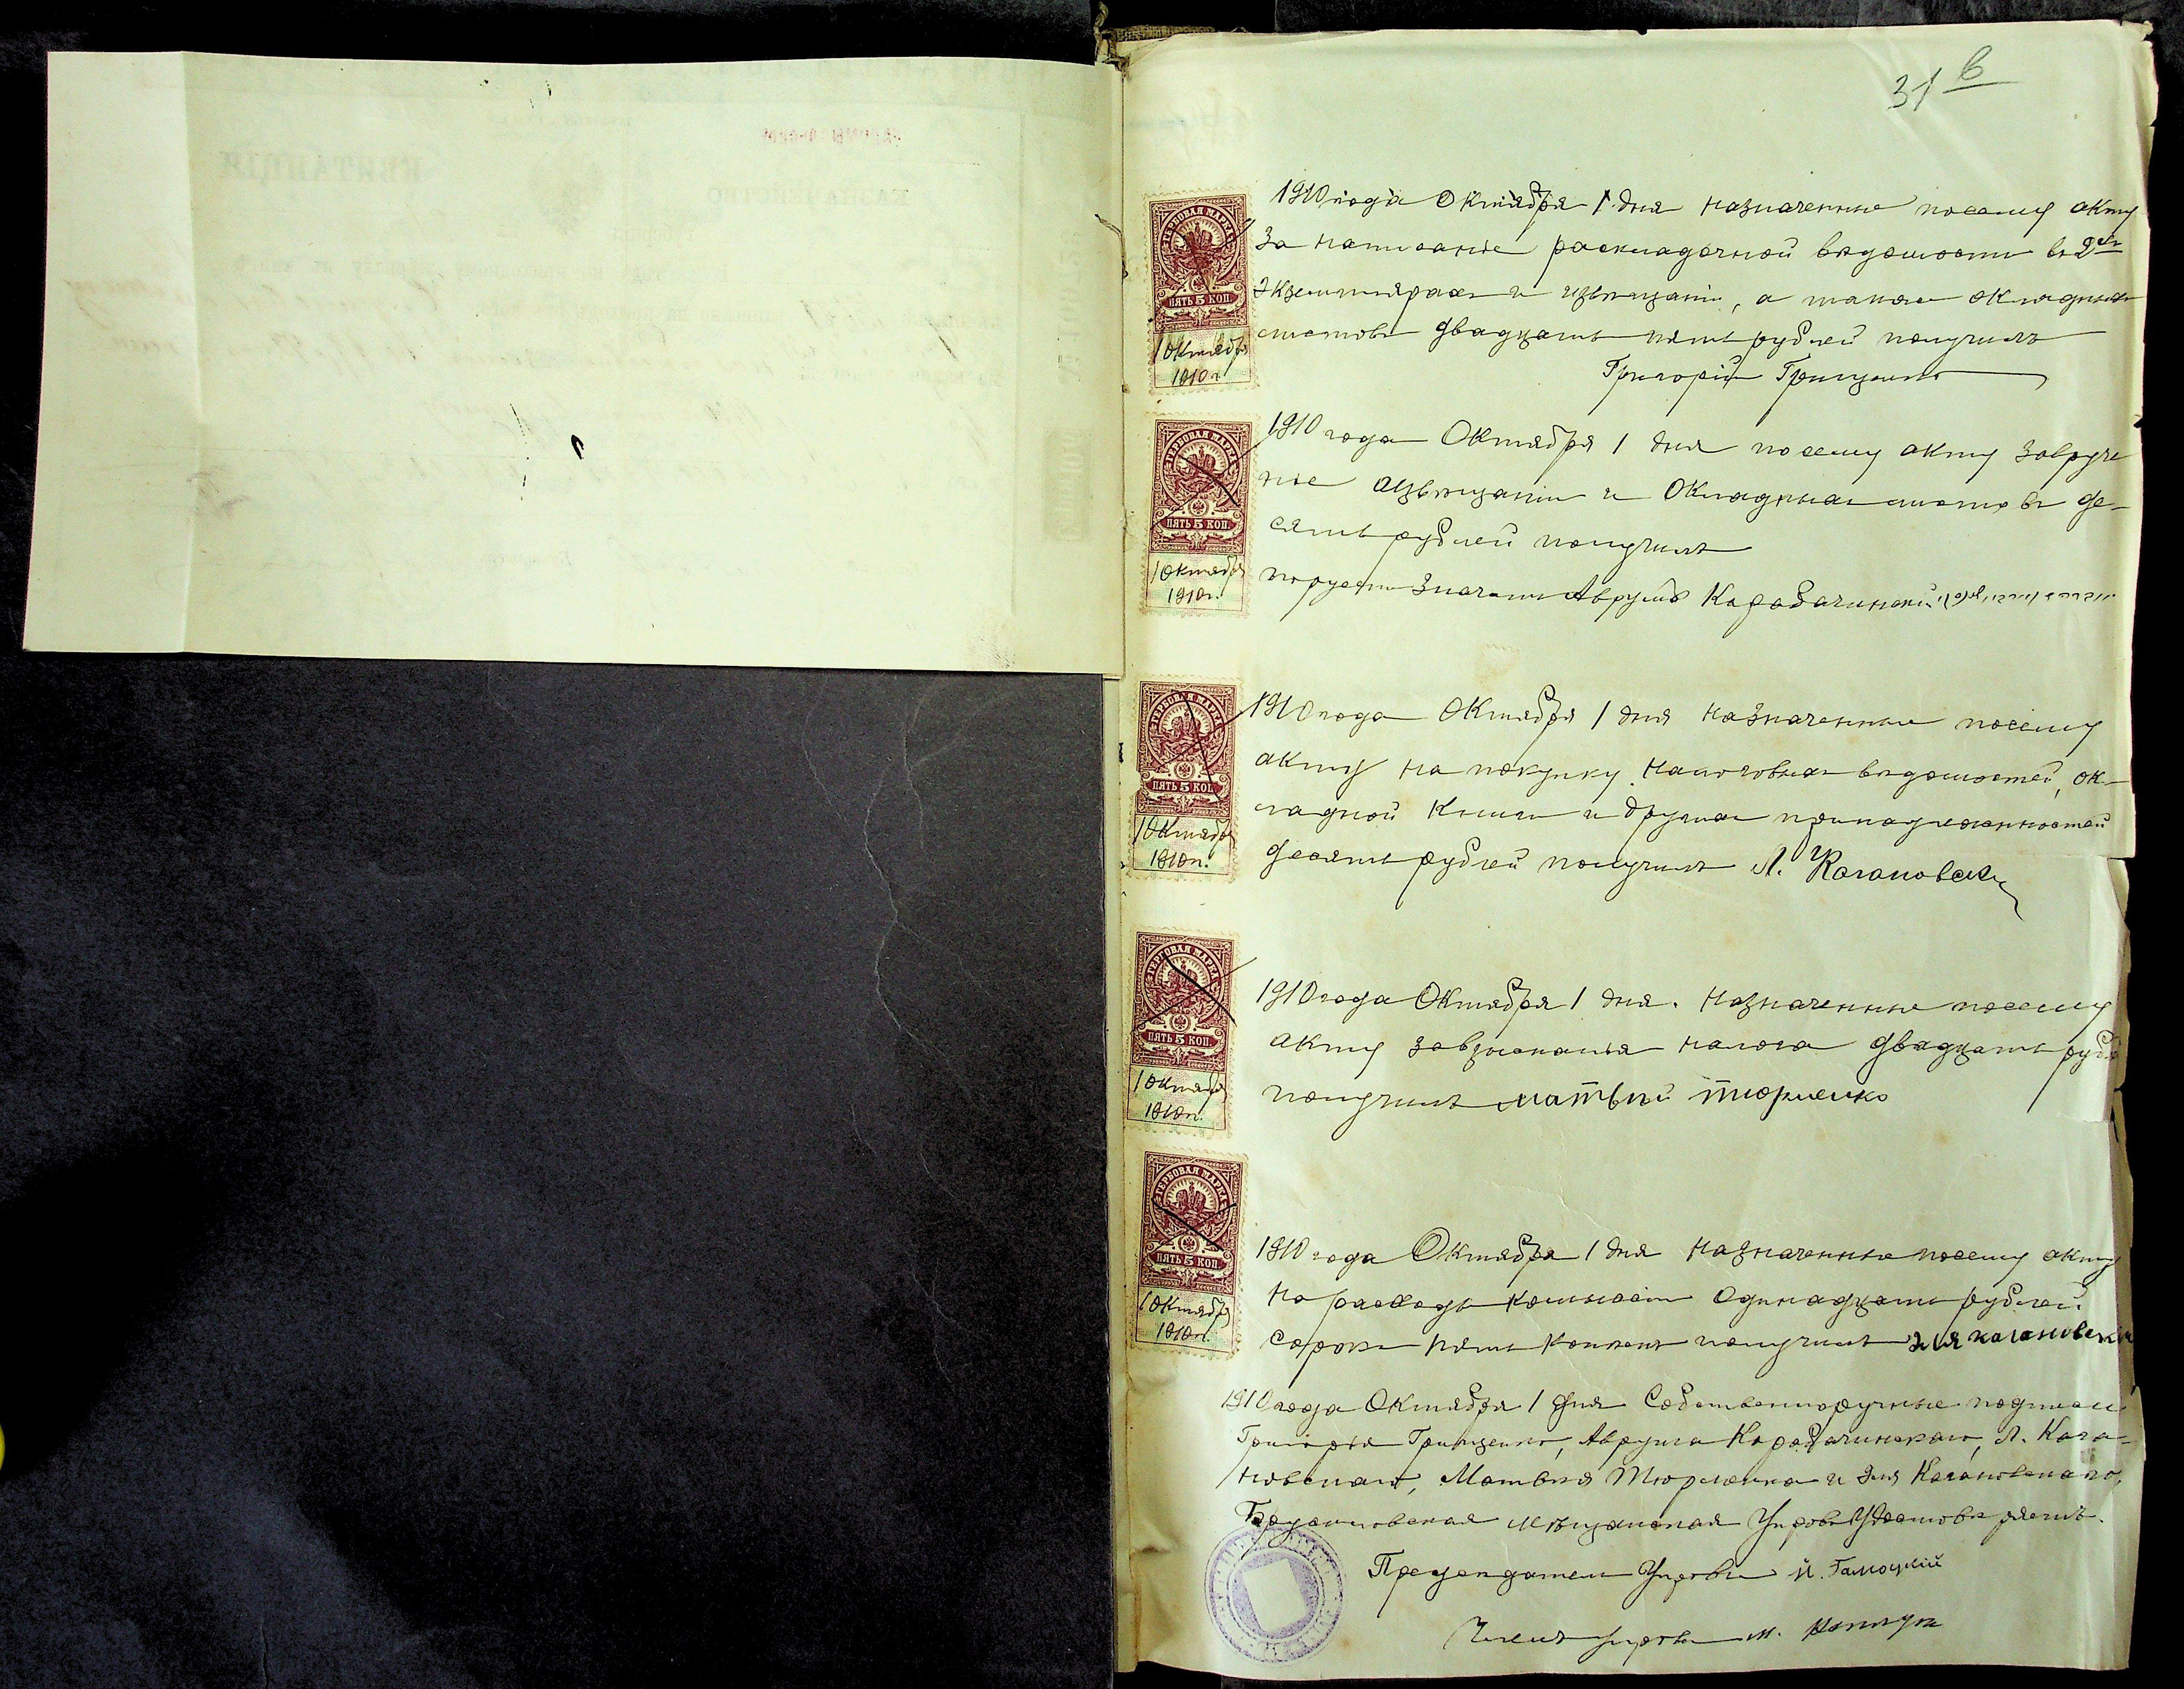 31 в
1910 года Октября 1 дня назначенные посему акту
За написание раскладочной ведомости в 2х
экземплярах и извещаній, а также окладныхъ
листовъ двадцать пять рублей получилъ
Григорій Грищенко
1910 года Октября 1 дня посему акту за вруче
ніе извещаній и Окладныхъ листовъ де-
сять рублей получилъ
Аврумъ Карабачинскій
1910 года Октября 1 дня назначенные посему
акту на покупку налоговыхъ ведомостей, ок-
ладной книги и другихъ принадлежностей
десять рублей получилъ Л. Кагановскій
1910 года Октября 1 дня. Назначенные посему
акту за взысканія налога двадцать руб.
получилъ Матвѣй Тюрменко
1910 года Октября 1 дня назначенные посему акту
на расходы комиссіи Одинадцать рублей
сорокъ пять копѣекъ получилъ Эля Кагановскій
1910 года Октября 1 дня Собственноручные подписи
Григорія Грищенко, Аврума Карабачинскаго, Л. Кага-
новскаго, Матвѣя Тюрменка и Эля Кагановскаго,
мѣщанская Управа Удостовѣряетъ.
Председатель Управы И. Гамоцкій
Членъ Управы М.
ГЕРБОВАЯ МАРКА
ПЯТЬ 5 КОП.
1 Октября
1910 г.
ГЕРБОВАЯ МАРКА
ПЯТЬ 5 КОП.
1 Октября
1910 г.
ГЕРБОВАЯ МАРКА
ПЯТЬ 5 КОП.
1 Октября
1910 г.
ГЕРБОВАЯ МАРКА
ПЯТЬ 5 КОП.
1 Октября
1910 г.
ГЕРБОВАЯ МАРКА
ПЯТЬ 5 КОП.
1 Октября
1910 г.
КВИТАНЦІЯ
КАЗНАЧЕЙСТВО